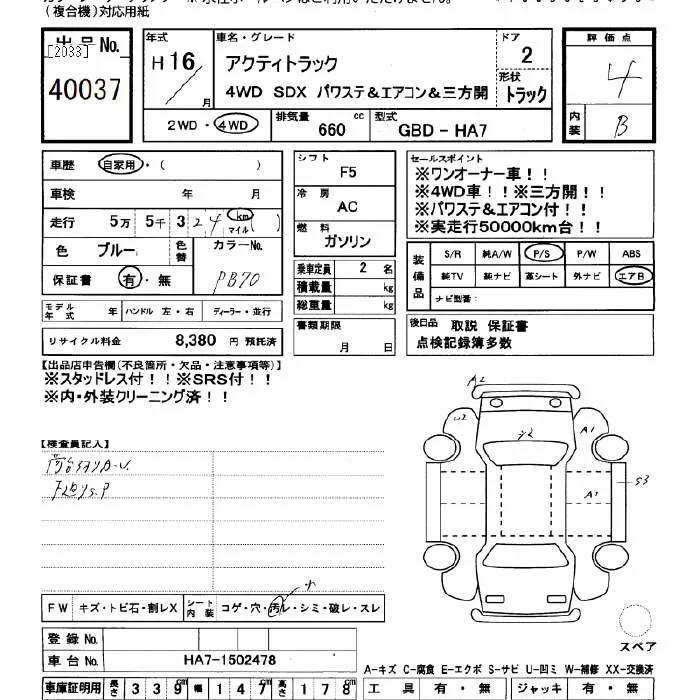 (複合機)対応用紙
出品No.
[2033]
40037
年式 H16 / 月
車名・グレード
アクティトラック
4WD SDX パワステ&エアコン&三方開
ドア 2
形状 トラック
評価点 4
内装 B
2WD・4WD
排気量 660 cc
型式 GBD-HA7
車歴 自家用・( )
車検 年 月
走行 5万 5千 324 km マイル ( )
色 ブルー
色替
カラーNo. PB70
保証書 有・無
モデル年式 年 ハンドル 左・右 ディーラー・並行
リサイクル料金 8,380 円 預託済
シフト F5
冷房 AC
燃料 ガソリン
乗車定員 2 名
積載量 kg
総重量 kg
書類期限 月 日
セールスポイント
※ワンオーナー車!!
※4WD車!!※三方開!!
※パワステ&エアコン付!!
※実走行50000km台!!
装備品
S/R 純A/W P/S P/W ABS
純TV 純ナビ 革シート 外ナビ エアB
ナビ型番:
後日品 取説 保証書
点検記録簿多数
【出品店申告欄(不良箇所・欠品・注意事項等)】
※スタッドレス付!!※SRS付!!
※内・外装クリーニング済!!
【検査員記入】
A2
U2
A1
A1
S3
FW キズ・トビ石・割レX
シート内装 コゲ・穴・汚レ・シミ・破レ・スレ
小
登録No.
車台No. HA7-1502478
車庫証明用 長さ 339cm 幅 147cm 高さ 178cm
スペア
A-キズ C-腐食 E-エクボ S-サビ U-凹ミ W-補修 XX-交換済
工具 有・無 ジャッキ 有・無